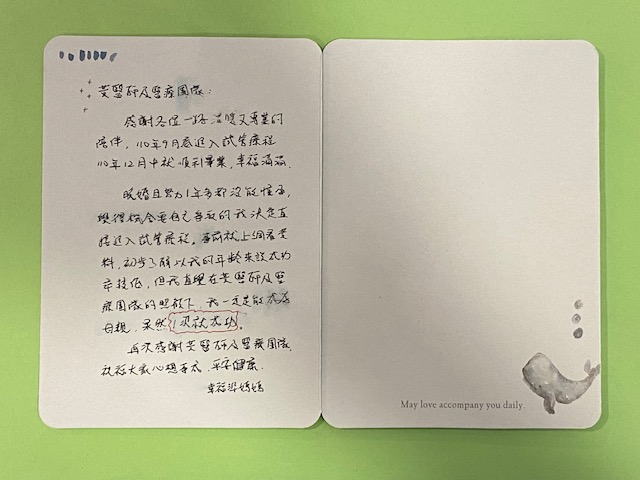 黃醫師及醫療團隊:
感謝各位一路溫暖又專業的
陪伴, 110年9月底進入試管療程
110年12月中就順利畢業, 幸福滿滿.
晚婚且努力1年多都沒能懷孕,
覺得機會要自己爭取的我決定直
接進入試管療程. 當時就上網看資
料, 初步了解以我的年齡來說成功
率較低, 但我直覺在黃醫師及醫
療團隊的照顧下, 我一定是能成為
母親, 果然1次就成功.
再次感謝黃醫師及醫療團隊,
祝福大家心想事成, 平安健康.
幸福
媽媽
May love accompany you daily.